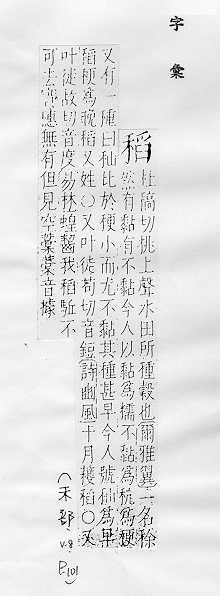 字彙
稻
杜皓切挑上聲水田所種穀也爾雅翼一名稌
然有黏有不黏今人以黏為糯不黏為秔為稉
又有一種曰秈比於稉小而尤不黏其種甚早今人號秈為早
稻稉為晚稻又姓○又叶徒苟切音鋀詩豳風十月穫稻○又
叶徒故切音度易林蝗齧我稻驅不
可去實穗無有但見空藁藁音據
(禾部 v.8 P.101)